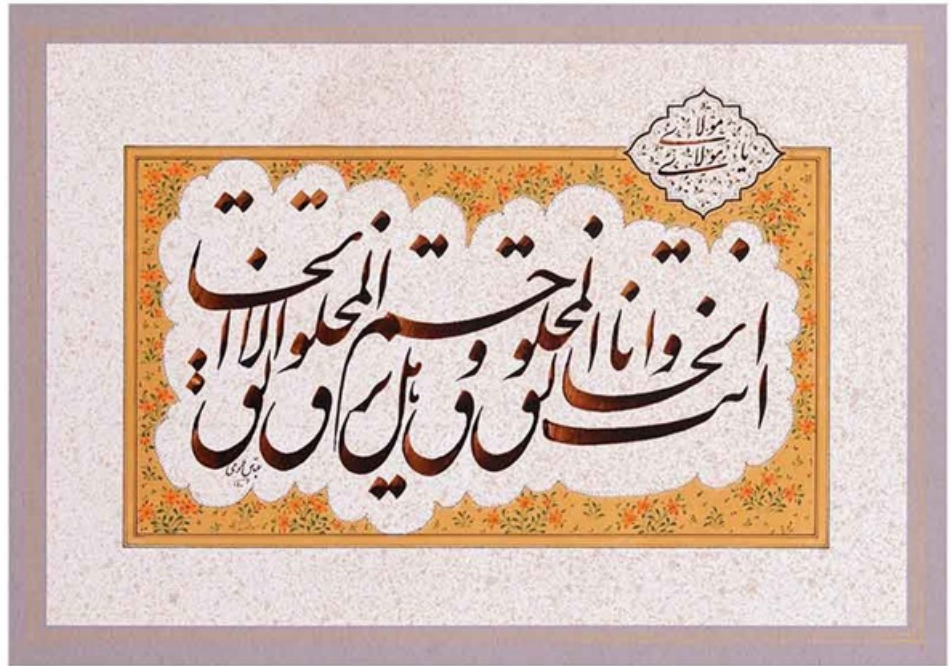 مولای یا مولای
انت الخالق و انا المخلوق و هل یرحم المخلوق الا الخالق